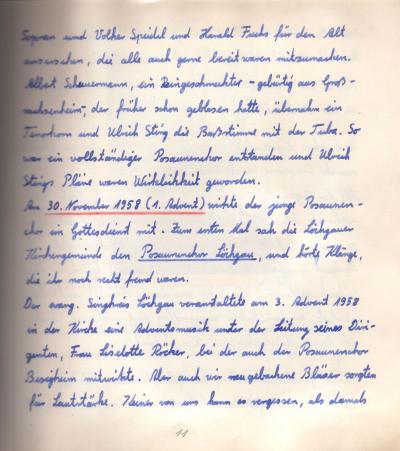 Sopran und Volker Speidel und Harald Fuchs für den Alt
ausersehen, die alle auch gerne bereit waren mitzumachen.
Albert Scheuermann, ein Reingeschmeckter - gebürtig aus Groß-
sachsenheim -, der früher schon geblasen hatte, übernahm ein
Tenorhorn und Ulrich Sting die Baßstimme mit der Tuba. So
war ein vollständiger Posaunenchor entstanden und Ulrich
Stings Pläne waren Wirklichkeit geworden.
Am 30. November 1958 (1. Advent) wirkte der junge Posaunen-
chor im Gottesdienst mit. Zum ersten Mal sah die Löchgauer
Kirchengemeinde den Posaunenchor Löchgau, und hörte Klänge,
die ihr noch recht fremd waren.
Der evang. Singkreis Löchgau veranstaltete am 3. Advent 1958
in der Kirche eine Adventsmusik unter der Leitung seines Diri-
genten, Frau Liselotte Röcker, bei der auch der Posaunenchor
Besigheim mitwirkte. Aber auch wir neugebackene Bläser sorgten
für Lautstärke. Keiner von uns kann es vergessen, als damals
11